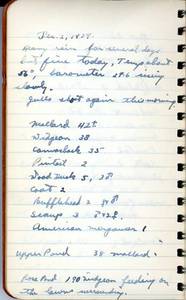 Dec. 2, 1929.
Heavy rain for several days
but fine today, Temp about
56°, barometer 29.6 rising
slowly.
Gulls about again this morning.
Mallard 425
Widgeon 38
Canvasback 35
Pintail 2
Wood Duck 5,
Coot 2
Bufflehead 2
Scaup 3
American merganser 1
Upper Pond 38 mallard.
Rose Pond 190 widgeon feeding on
the lawns surrounding.